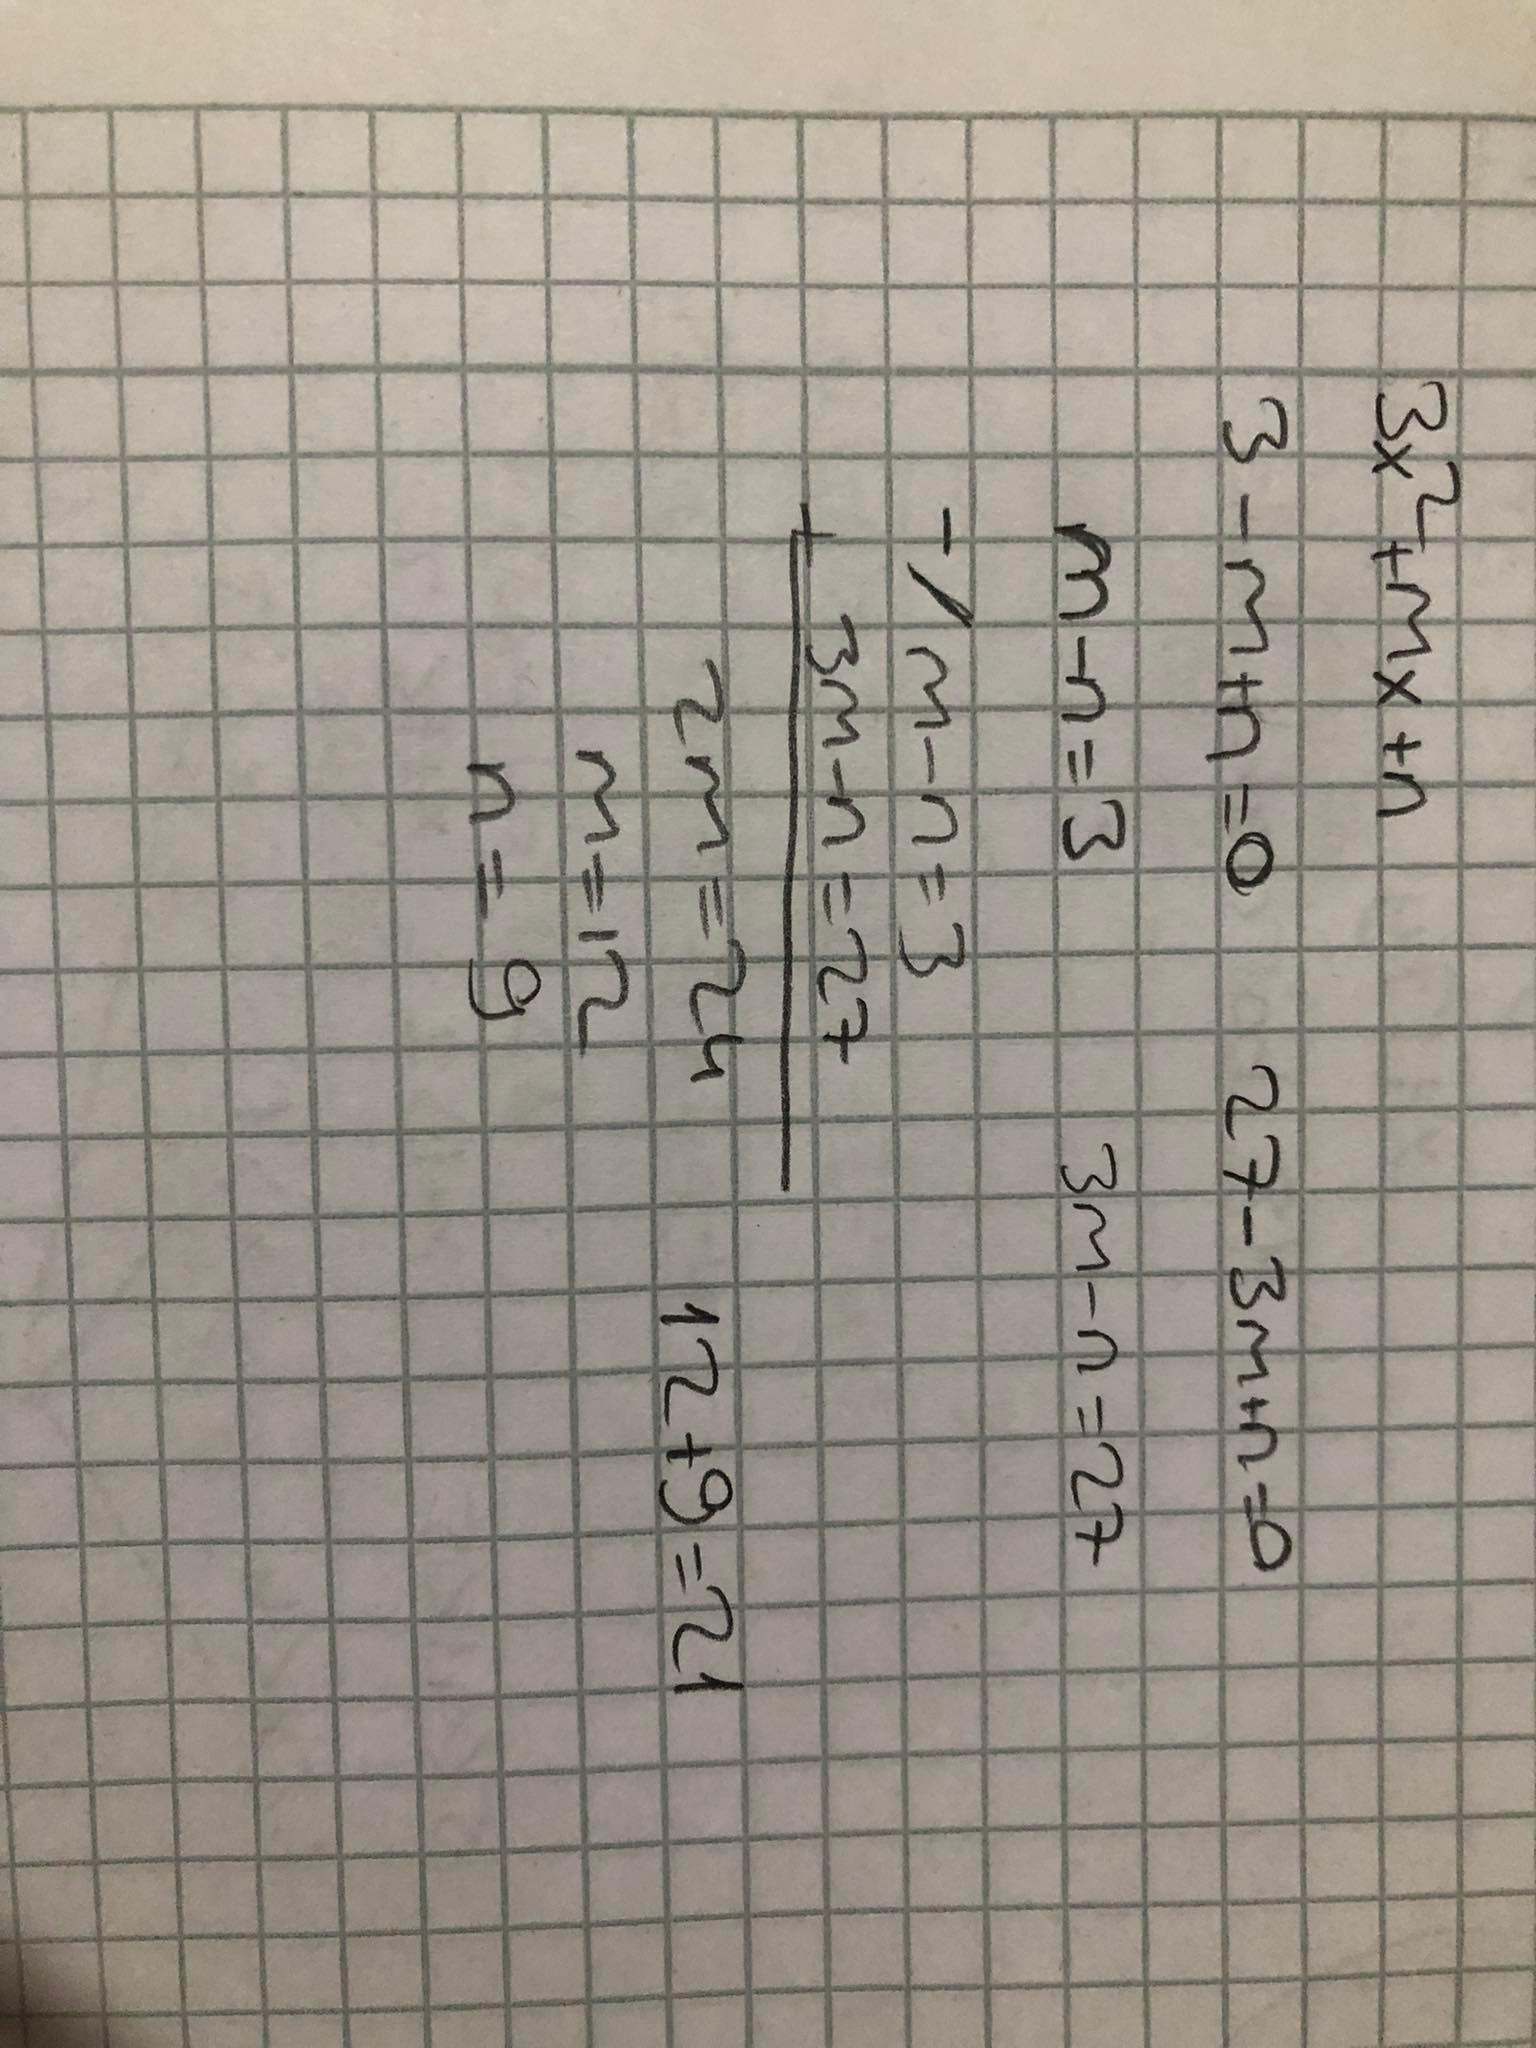 3x²+mx+n
3-m+n=0 27-3m+n=0
m-n=3 3m-n=27
-/ m-n=3
+ 3m-n=27
2m=24 12+9=21
m=12
n=9